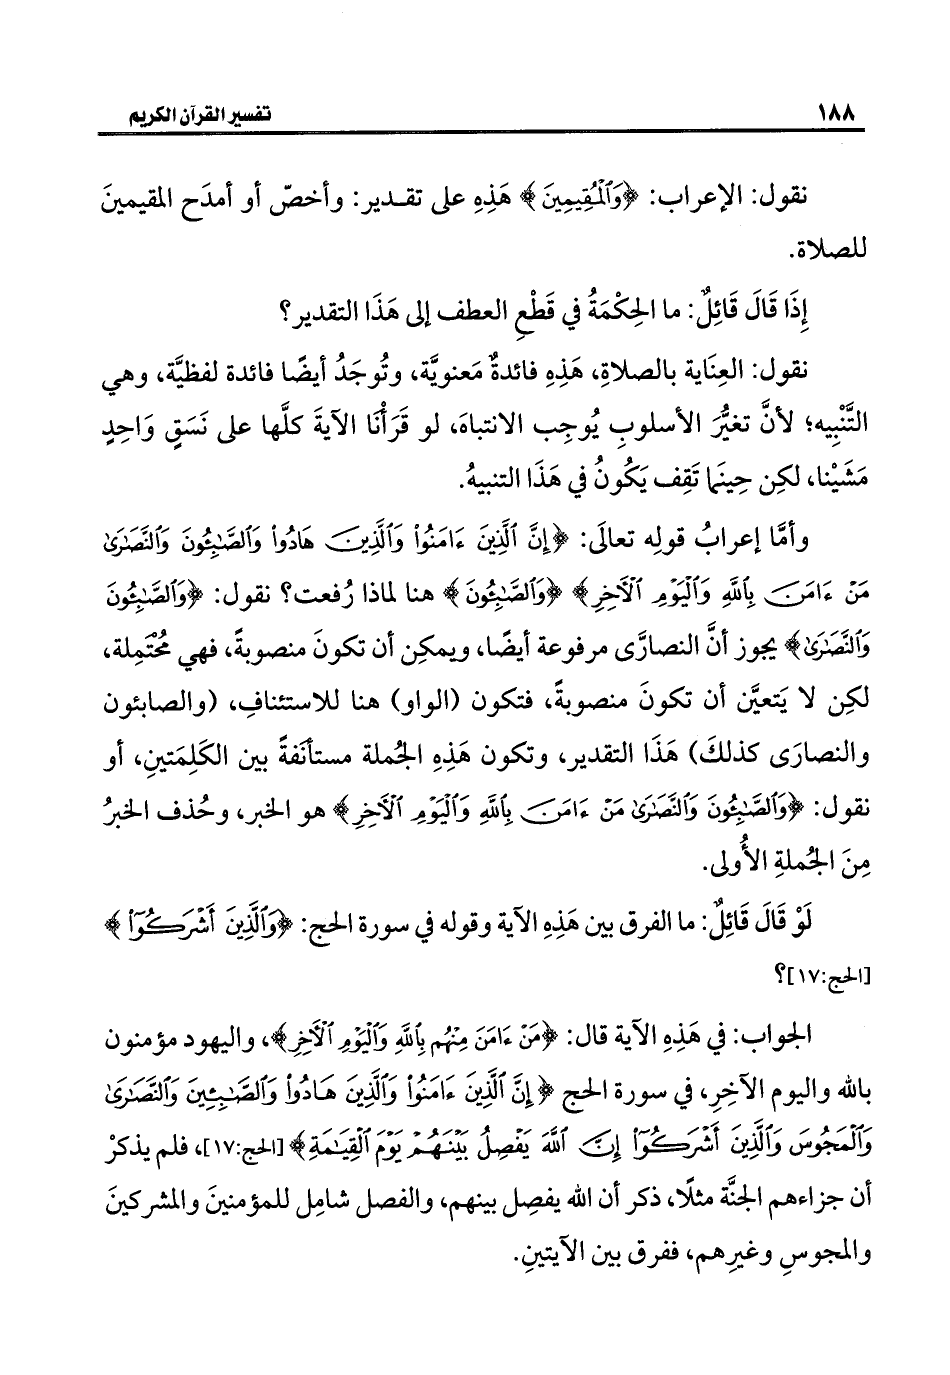 ١٨٨ تفسير القرآن الكريم
نقول: الإعراب: ﴿وَٱلْمُقِيمِينَ﴾ هَذِهِ على تقـدير: وأخصّ أو أمدَح المقيمينَ
للصلاة.
إِذَا قَالَ قَائِلٌ: ما الحِكْمَةُ في قَطْعِ العطف إلى هَذَا التقدير؟
نقول: العِنَاية بالصلاةِ، هَذِهِ فائدةٌ مَعنويَّة، وتُوجَدُ أيضًا فائدة لفظيَّة، وهي
التَّنْبِيه؛ لأنَّ تغيُّرَ الأسلوبِ يُوجِب الانتباهَ، لو قَرَأْنَا الآيةَ كلَّها على نَسَقٍ وَاحِدٍ
مَشَيْنا، لكِن حِينَما تَقِف يَكُونُ في هَذَا التنبيهُ.
وأمَّا إعرابُ قولِه تعالَى: ﴿إِنَّ ٱلَّذِينَ ءَامَنُوا۟ وَٱلَّذِينَ هَادُوا۟ وَٱلصَّٰبِـُٔونَ وَٱلنَّصَٰرَىٰ
مَنْ ءَامَنَ بِٱللَّهِ وَٱلْيَوْمِ ٱلْـَٔاخِرِ﴾ ﴿وَٱلصَّٰبِـُٔونَ﴾ هنا لماذا رُفعت؟ نقول: ﴿وَٱلصَّٰبِـُٔونَ
وَٱلنَّصَٰرَىٰ﴾ يجوز أنَّ النصارَى مرفوعة أيضًا، ويمكِن أن تكونَ منصوبةً، فهي مُحْتَمِلة،
لكِن لا يَتعيَّن أن تكونَ منصوبةً، فتكون (الواو) هنا للاستئنافِ، (والصابئون
والنصارَى كذلكَ) هَذَا التقدير، وتكون هَذِهِ الجُملة مستأنَفةً بين الكَلِمَتينِ، أو
نقول: ﴿وَٱلصَّٰبِـُٔونَ وَٱلنَّصَٰرَىٰ مَنْ ءَامَنَ بِٱللَّهِ وَٱلْيَوْمِ ٱلْـَٔاخِرِ﴾ هو الخبر، وحُذف الخبرُ
مِنَ الجُملةِ الأُولى.
لَوْ قَالَ قَائِلٌ: ما الفرق بين هَذِهِ الآية وقوله في سورة الحج: ﴿وَٱلَّذِينَ أَشْرَكُوٓا۟﴾
[الحج:١٧]؟
الجواب: في هَذِهِ الآية قال: ﴿مَنْ ءَامَنَ مِنْهُم بِٱللَّهِ وَٱلْيَوْمِ ٱلْـَٔاخِرِ﴾، واليهود مؤمنون
بالله واليوم الآخِرِ، في سورة الحج ﴿إِنَّ ٱلَّذِينَ ءَامَنُوا۟ وَٱلَّذِينَ هَادُوا۟ وَٱلصَّٰبِـِٔينَ وَٱلنَّصَٰرَىٰ
وَٱلْمَجُوسَ وَٱلَّذِينَ أَشْرَكُوٓا۟ إِنَّ ٱللَّهَ يَفْصِلُ بَيْنَهُمْ يَوْمَ ٱلْقِيَٰمَةِ﴾ [الحج:١٧]، فلم يذكرْ
أن جزاءهم الجنَّة مثلًا، ذكر أن الله يفصِل بينهم، والفصل شامِل للمؤمنينَ والمشركينَ
والمجوسِ وغيرِهم، ففرق بين الآيتينِ.